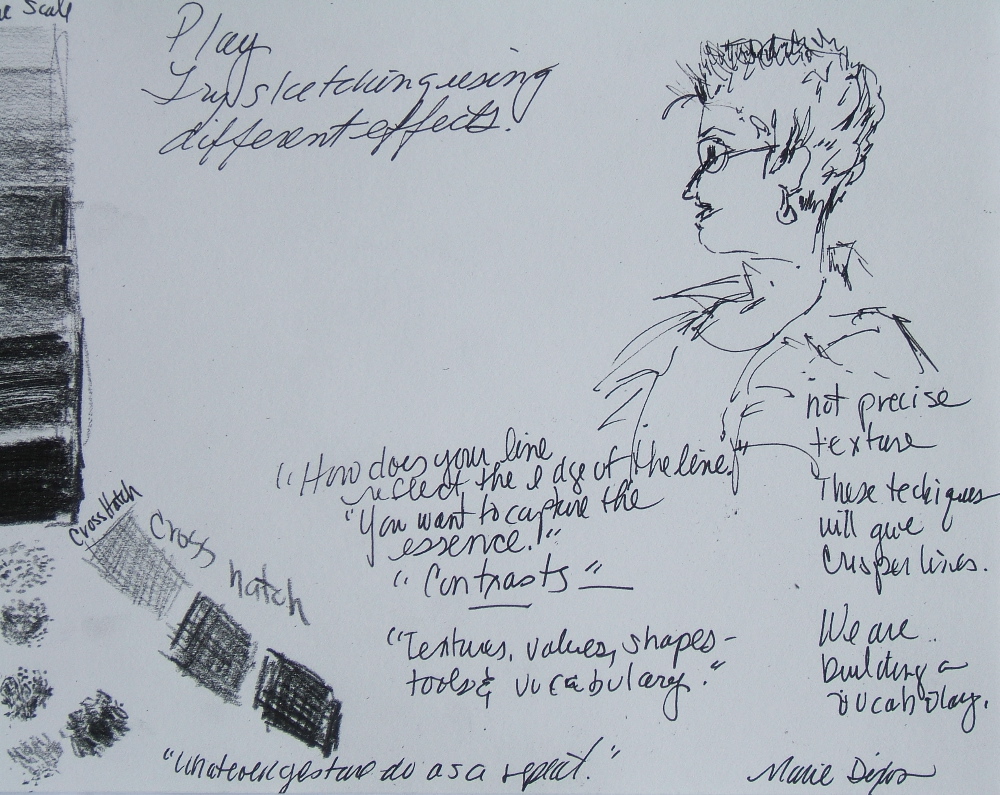 Scale
Play
Try sketching using
different effects.
"How does your line
reflect the edge of the line."
"You want to capture the
essence."
"Contrasts"
"Textures, values, shapes -
tools & vocabulary."
not precise
texture
These techiques
will give
crisper lines.
We are
building a
vocabulay.
Cross Hatch
Cross hatch
"Whatever gesture do as a repeat."
Marie